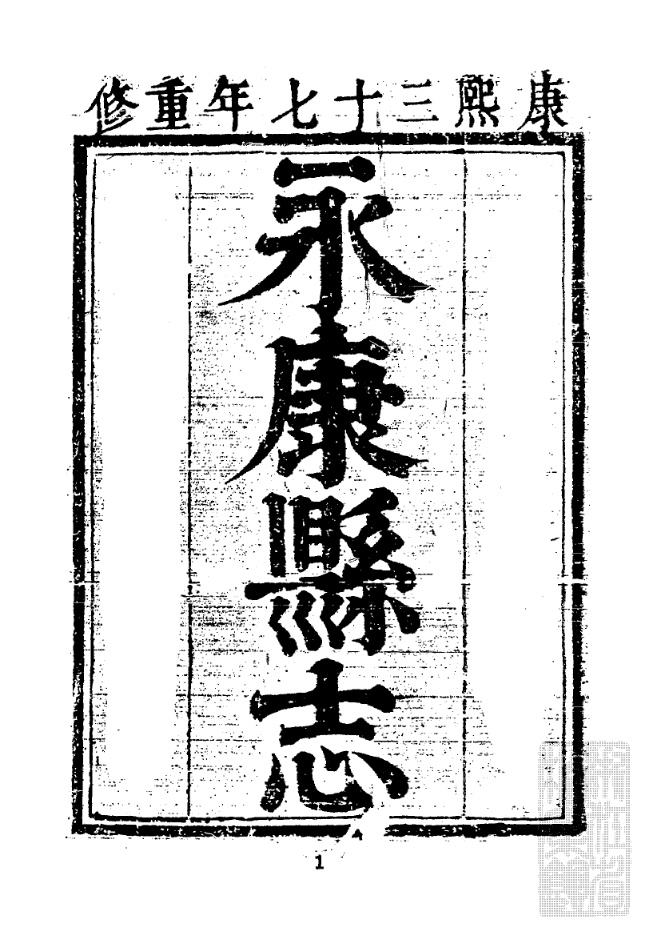 康熙三十七年重修
永康縣志
1